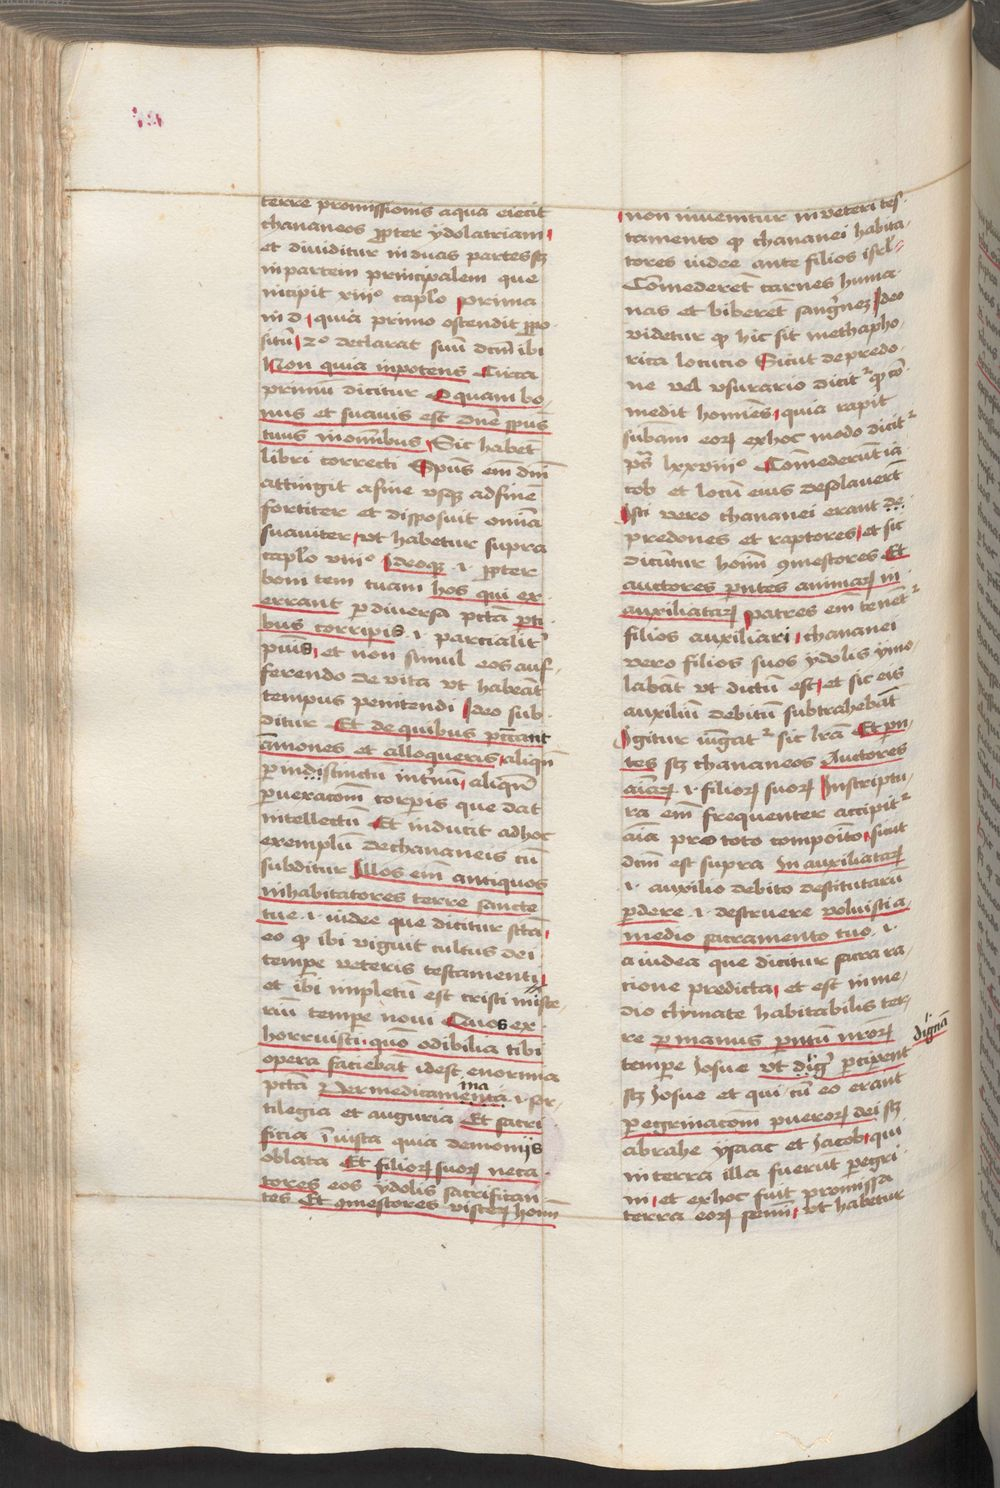 terre promissionis aqua eiecit
chananeos ꝓpter ydolatriam
et diuiditur in duas partes sꝫ
in partem principalem que
incipit xiiiº caplo prima
in d quia primo ostendit ꝓpo
situ 2º declarat suū dcm̄ ibi
Non quia inpotens Circa
primū dicitur O quam bo
nus et suauis est dn̄e sp̄us
tuus in om̄ibus Sic habēt
libri correcti Sp̄us em̄ dn̄i
attingit a fine vsqꝫ ad finē
fortiter et disposuit omīa
suauiter vt habetur supra
caplo viiiº Ideoqꝫ .i. ꝓpter
boni tem tuam hos qui ex
errant ꝑ diuersa pctā ꝑti
bus corripis .i. parcialit̾
punis et non simul eos auf
ferendo de vita vt habeāt
tempus penitendi Ideo sub
ditur Et de quibus pcc̄ant
am̄ones et alloqueris aliqn̄
ꝑ indistinctū int̾nū aliqn̄
ꝑ vexacōm corpis que dat
intellectū Et inducit ad hoc
exemplū de chananeis cū
subditur Illos em̄ antiquos
inhabitatores terre sancte
tue .i. iudee que dicitur sctā
eo ꝙ ibi viguit cultus dei
tempe veteris testamenti
et ibi impletū est cristi miste
riū tempe noui Quos ex
horruisti quō odibilia tibi
opera faciebāt id est enormia
pctā Per medicamenta ma .i. sor
tilegia et auguria Et sacri
ficia iniusta quia demoniis
oblata Et filioꝝ suoꝝ neca
tores eos ydolis sacrifican
tes Et ꝯmestores visceꝝ homī
non inuenitur in veteri tes
tamento ꝙ chananei habita
tores iudee ante filios isrl
Comederēt carnes huma
nas et biberēt sang̾nez Ideo
videtur ꝙ hic sit methapho
rica locucio Sicut de predo
ne vel vsurario dicit̾ ꝙ cō
medit homīes quia rapit
subam eoꝝ ex hoc modo dicit̾
ps̄ lxxviiiº Comederūt ia
cob et locū eius desolauerūt
Isti vero chananei erant de
predones et raptores et sic
dicūntur homī ꝯmestores Et
auctores ꝑntes animaꝝ in
auxiliataꝝ patres em̄ tenēt̾
filios auxiliari chananei
vero filios suos ydolis ymo
labāt vt dictū est et sic eis
auxiliū debitū subtrahebāt
Igitur iūgat̾ sic lrā Et pn̄
tes sꝫ chananeos Auctores
aīaꝝ .i. filioꝝ suoꝝ In scriptu
ra em̄ frequenter accipit̾
aīa pro toto compoīto sicut
dcm̄ est supra In auxiliataꝝ
.i. auxilio debito destitutarū
ꝑdere .i. destruere voluisti a
medio sacramento tuo .i.
a iudea que dicitur sacra ra
cione predicta et est in me
dio clymate habitabilis ter
re ꝑ manus ꝑntū nr̄oꝝ
tempe Josue vt dig̾ ꝑciperent
dignā
sꝫ Josue et qui cū eo erant
ꝑegrinacōm pueroꝝ dei sꝫ
abrahe ysaac et Jacob qui
in terra illa fuerūt ꝑegri
ni et ex hoc fuit promissa
terra eoꝝ semī vt habetur